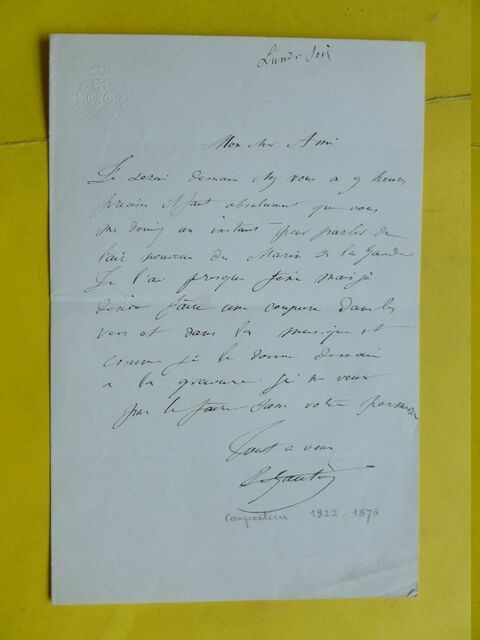 Lundi soir
Mon cher Ami
Je serai demain chez vous a 9 heures
précises il faut absolument que vous
me donniez un instant pour parler de
l'air nouveau du Marin de la Garde
Je l'ai presque fini mais je
désire faire une coupure dans les
vers et dans la musique et
comme je le donne demain
a la gravure je ne veux
pas le faire sans votre permission
Tout a vous
Gautier
compositeur 1822-1878